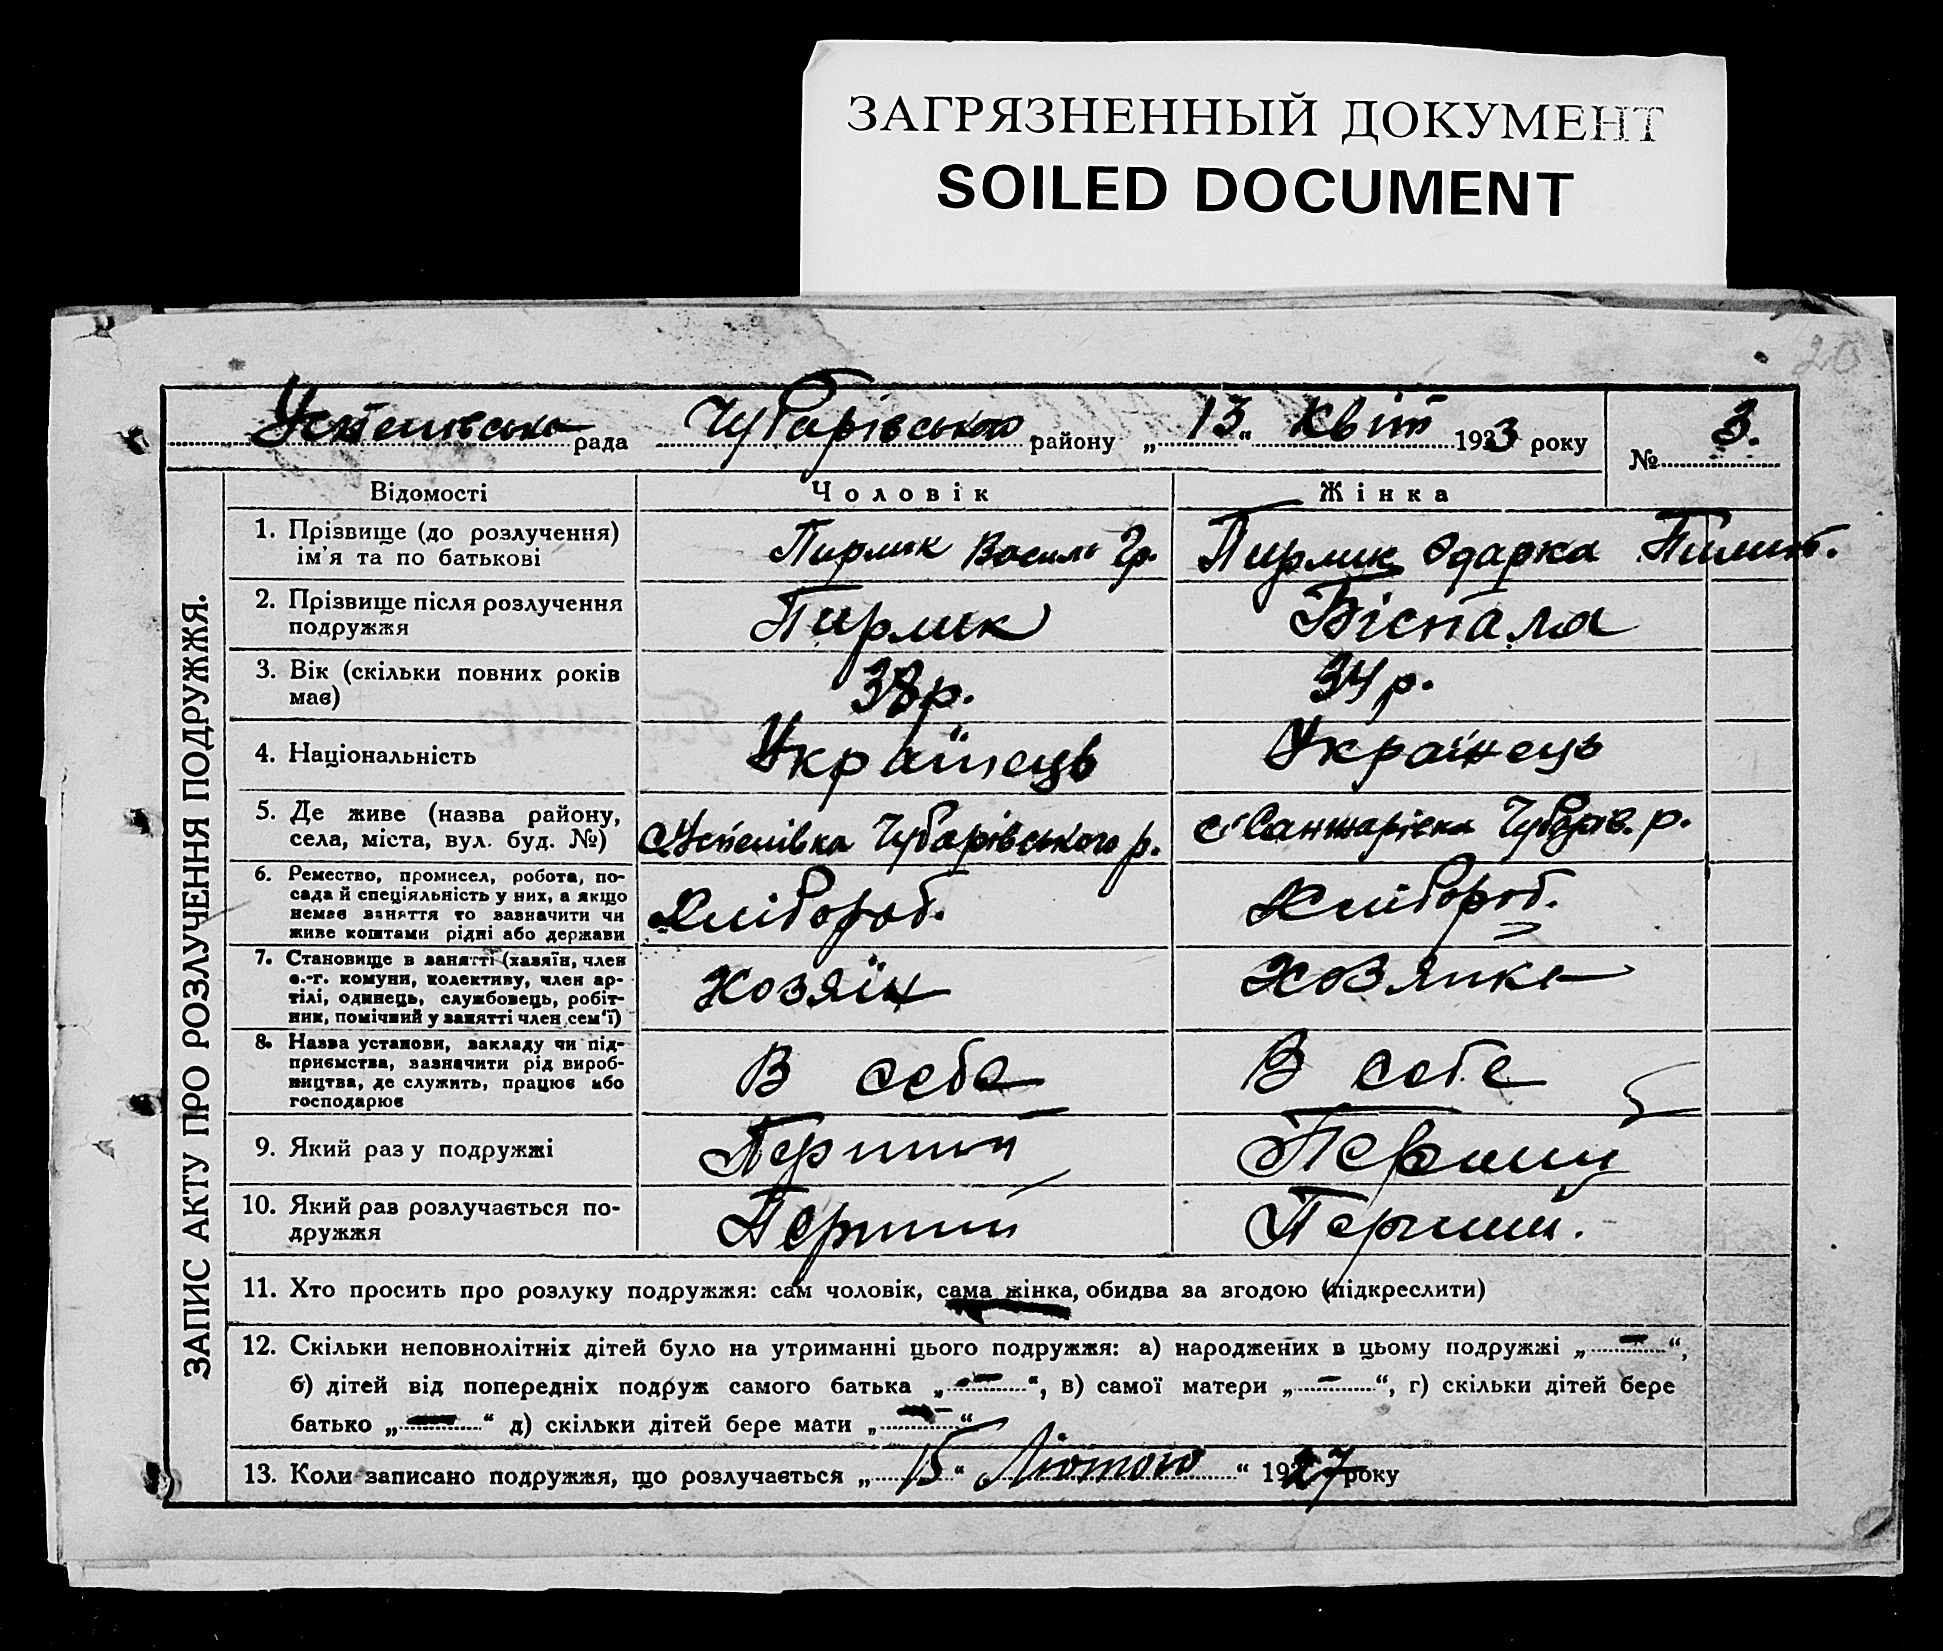 ЗАГРЯЗНЕННЫЙ ДОКУМЕНТ
SOILED DOCUMENT
20
Успенівська рада Чубарівського району „13“ Квіт 1933 року № 3.
ЗАПИС АКТУ ПРО РОЗЛУЧЕННЯ ПОДРУЖЖЯ.
Відомості Чоловік Жінка
1. Прізвище (до розлучення) ім'я та по батькові Пирлик Василь Гр. Пирлик Одарка Пилип.
2. Прізвище після розлучення подружжя Пирлик
3. Вік (скільки повних років має) 38 р. 34 р.
4. Національність Українець Українець
5. Де живе (назва району, села, міста, вул. буд. №) с Успенівка Чубарівського р. с Санжарівка Чубарів. р.
6. Ремество, промисел, робота, посада й спеціяльність у них, а якщо немає заняття то зазначити чи живе коштами рідні або держави Хлібороб. Хлібороб.
7. Становище в занятті (хазяїн, член с.-г. комуни, колективу, член артілі, одинець, службовець, робітник, помічний у занятті член сем'ї) Хозяїн Хозяйка
8. Назва установи, закладу чи підприємства, зазначити рід виробництва, де служить, працює або господарює В себе В себе
9. Який раз у подружжі Перший Первий
10. Який раз розлучається подружжя Перший Перший.
11. Хто просить про розлуку подружжя: сам чоловік, сама жінка, обидва за згодою (підкреслити)
12. Скільки неповнолітніх дітей було на утриманні цього подружжя: а) народжених в цьому подружжі „—“,
б) дітей від попередніх подруж самого батька „—“, в) самої матери „—“, г) скільки дітей бере
батько „—“ д) скільки дітей бере мати „—“
13. Коли записано подружжя, що розлучається „15“ Лютого“ 1927 року